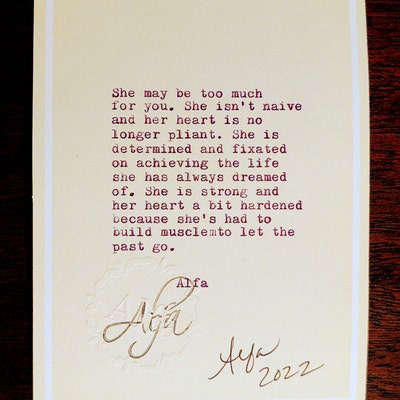 She may be too much
for you. She isn't naive
and her heart is no
longer pliant. She is
determined and fixated
on achieving the life
she has always dreamed
of. She is strong and
her heart a bit hardened
because she's had to
build musclemto let the
past go.
Alfa
Alfa
Alfa
2022